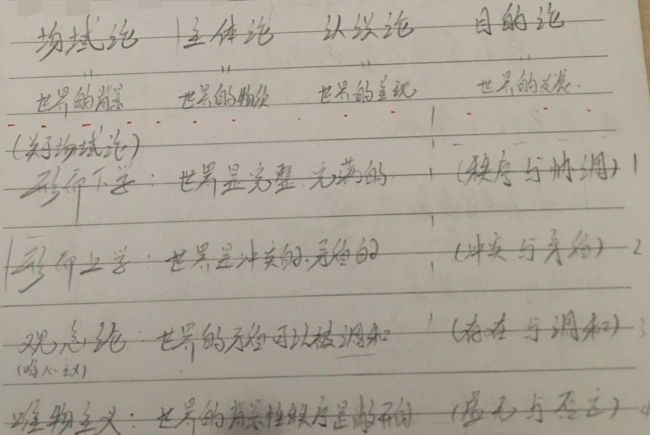 场域论 主体论 认识论 目的论
世界的背景 世界的物质 世界的呈现 世界的发展.
(关于场域论)
形而下学：世界是完整 充满的 (秩序与协调) 1
形而上学：世界是冲突的.矛盾的 (冲突与矛盾) 2
观念论：世界的矛盾可以被调和 (存在与调和) 3
(唯心主义)
唯物主义：世界的背景性秩序是的 (虚无与否定) 4